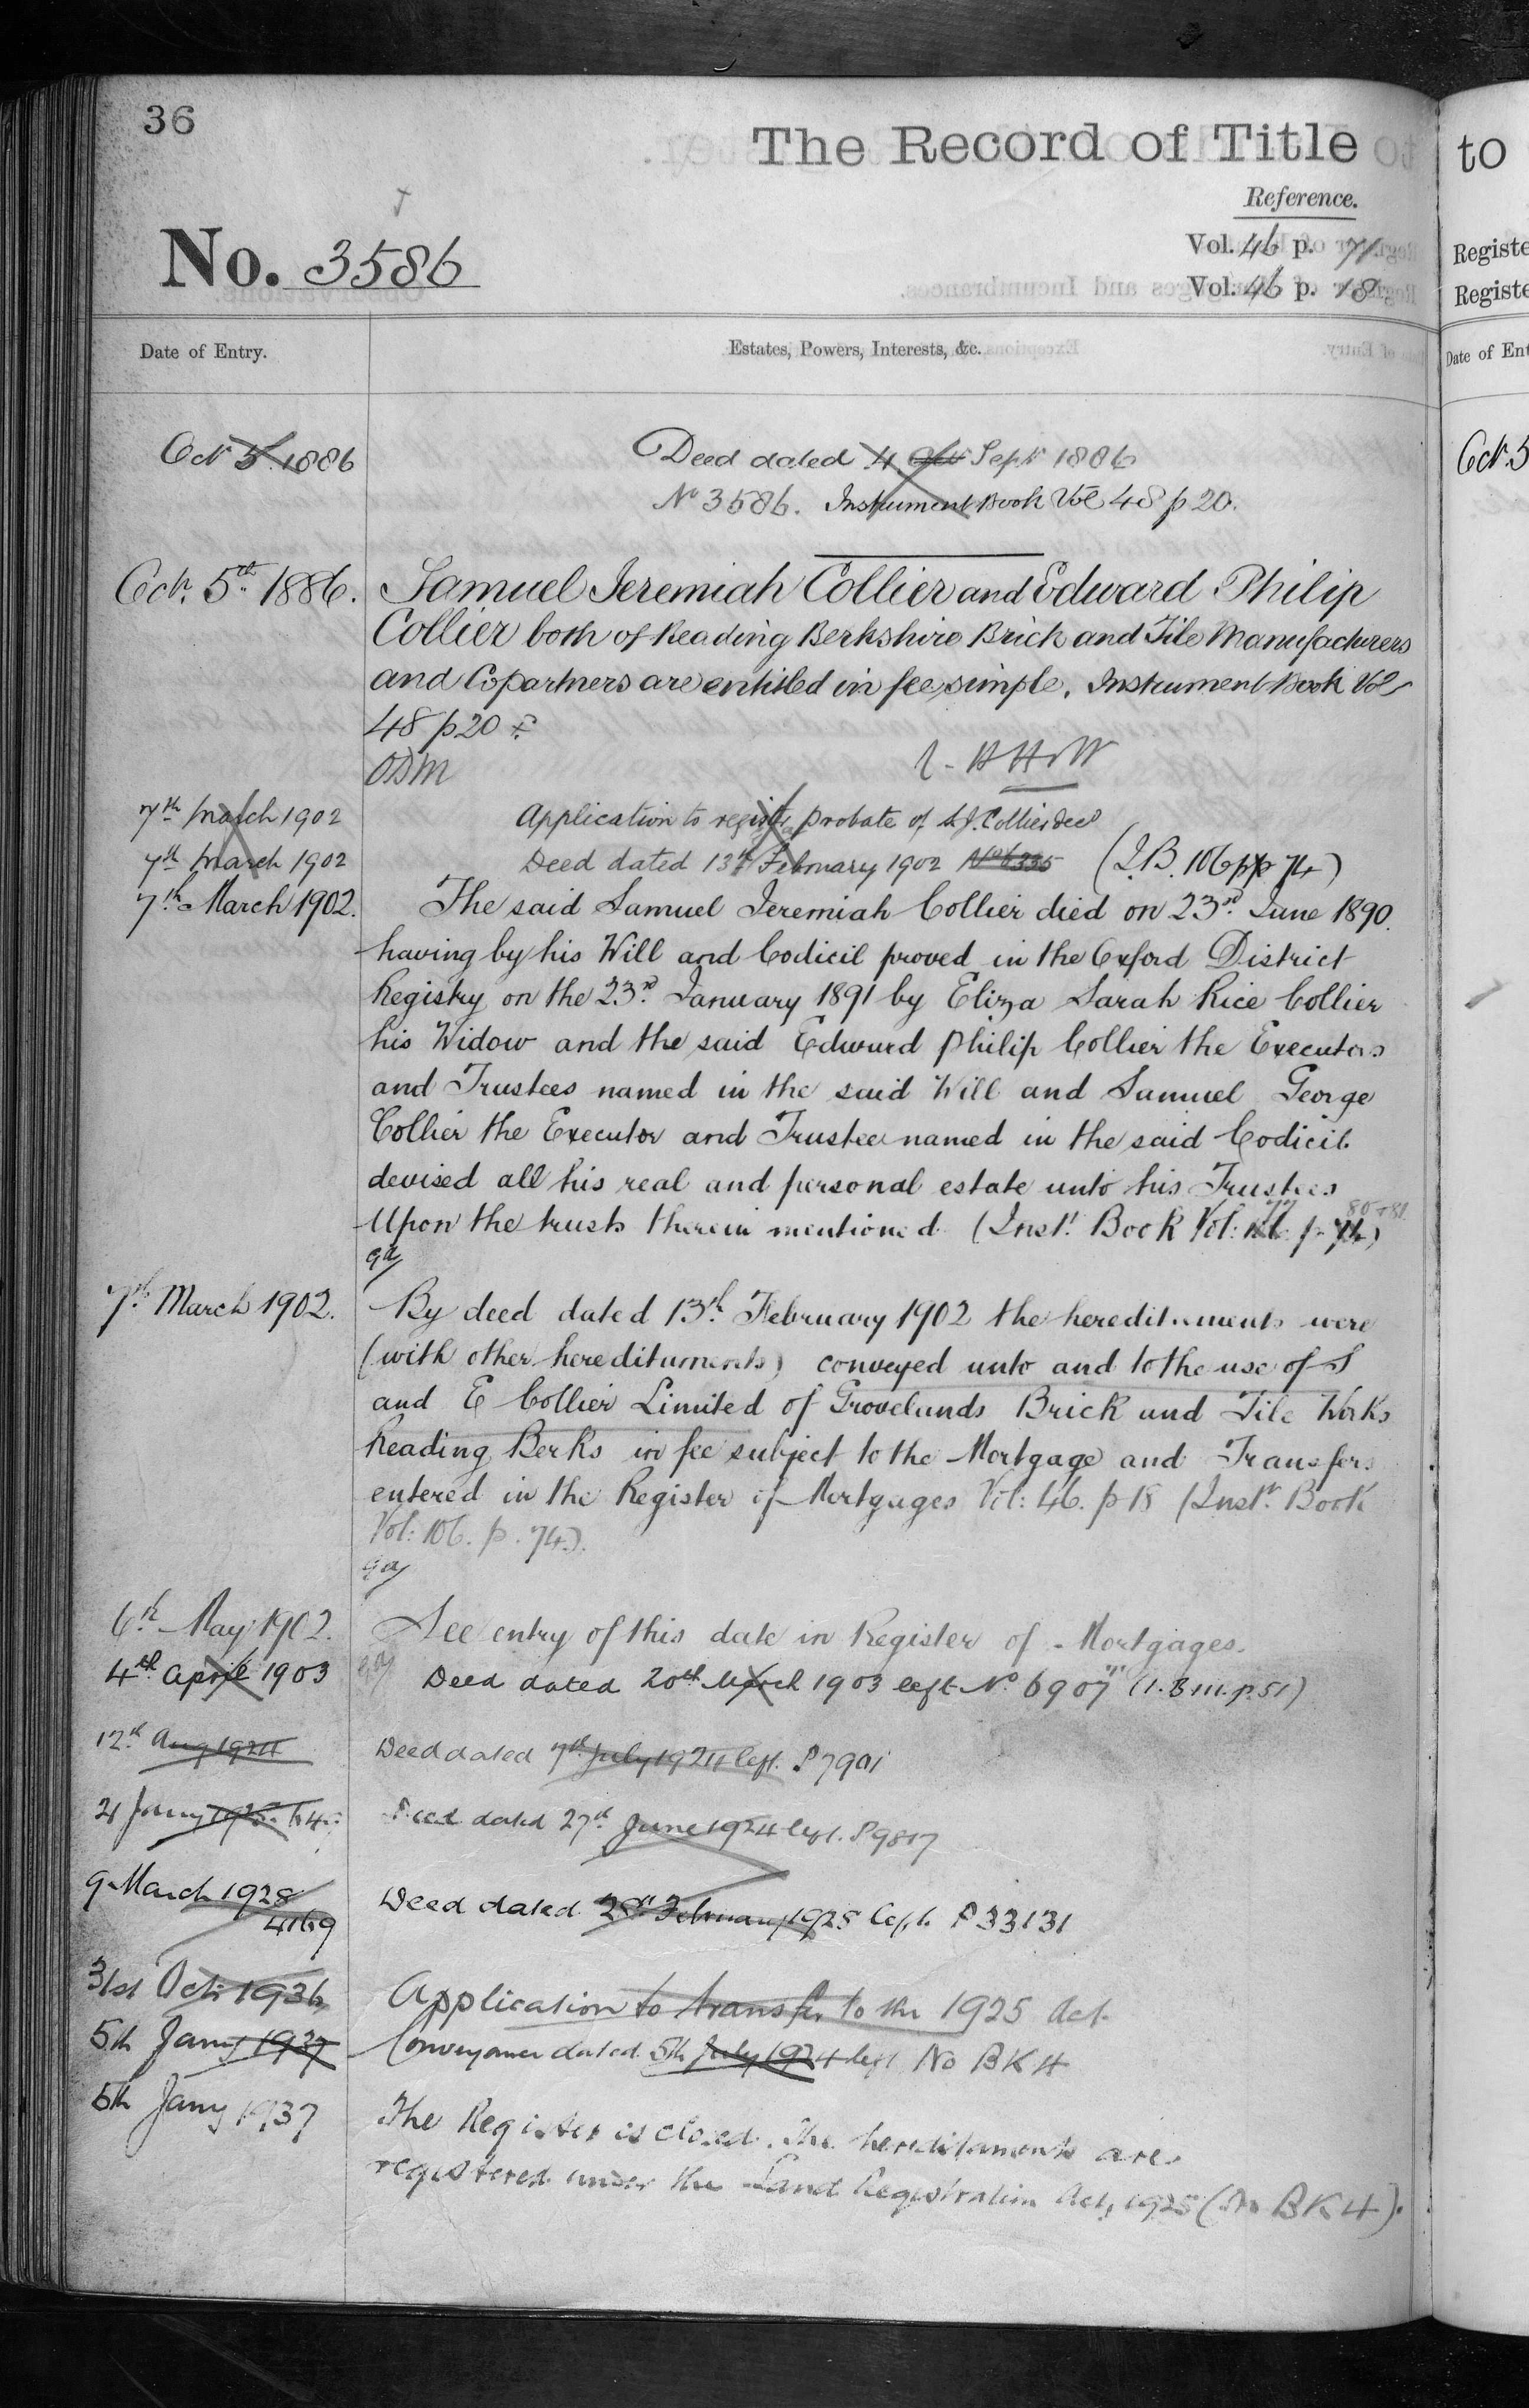 36
The Record of Title
to
Reference.
No. 3586
Vol. 46 p. 71.
Vol. 46 p. 18.
Registe
Registe
Date of Entry.
Estates, Powers, Interests, &c.
Date of Ent
Oct 5. 1886
Deed dated 4 Oct Sept 1886
No 3586. Instrument Book Vol 48 p 20.
Oct. 5
Oct. 5th 1886.
Samuel Jeremiah Collier and Edward Philip
Collier both of Reading Berkshire Brick and Tile Manufacturers
and Copartners are entitled in fee simple. Instrument Book Vol
48 p 20
ODM
7th March 1902
Application to register probate of S. J. Collier decd
7th March 1902
Deed dated 13th February 1902 No 6335 (I.B. 106 pp 74)
7th March 1902.
The said Samuel Jeremiah Collier died on 23rd June 1890.
having by his Will and Codicil proved in the Oxford District
Registry on the 23rd January 1891 by Eliza Sarah Rice Collier
his Widow and the said Edward Philip Collier the Executors
and Trustees named in the said Will and Samuel George
Collier the Executor and Trustee named in the said Codicil
devised all his real and personal estate unto his Trustees
Upon the trusts therein mentioned (Inst. Book Vol: 77 p. 80 & 81)
7th March 1902.
By deed dated 13th February 1902 the hereditaments were
(with other hereditaments) conveyed unto and to the use of S
and E Collier Limited of Grovelands Brick and Tile Works
Reading Berks in fee subject to the Mortgage and Transfers
entered in the Register of Mortgages Vol: 46. p 18 (Inst. Book
Vol: 106. p. 74.)
6th May 1902.
See entry of this date in Register of Mortgages.
4th April 1903
Deed dated 20th March 1903 left No 6907 (I.B. 111. p. 51)
12th Aug 1924
Deed dated 7th July 1924 left. P 7901
21 Jany 1925
Deed dated 27th June 1924 left. P 9817
9 March 1928
4169
Deed dated 28th February 1928 left P 33131
31st Oct. 1936
Application to transfer to the 1925 Act.
5th Jany 1937
Conveyance dated 5th July 1924 left No BK 4
5th Jany 1937
The Register is closed. The hereditaments are
registered under the Land Registration Act, 1925 (No BK 4).